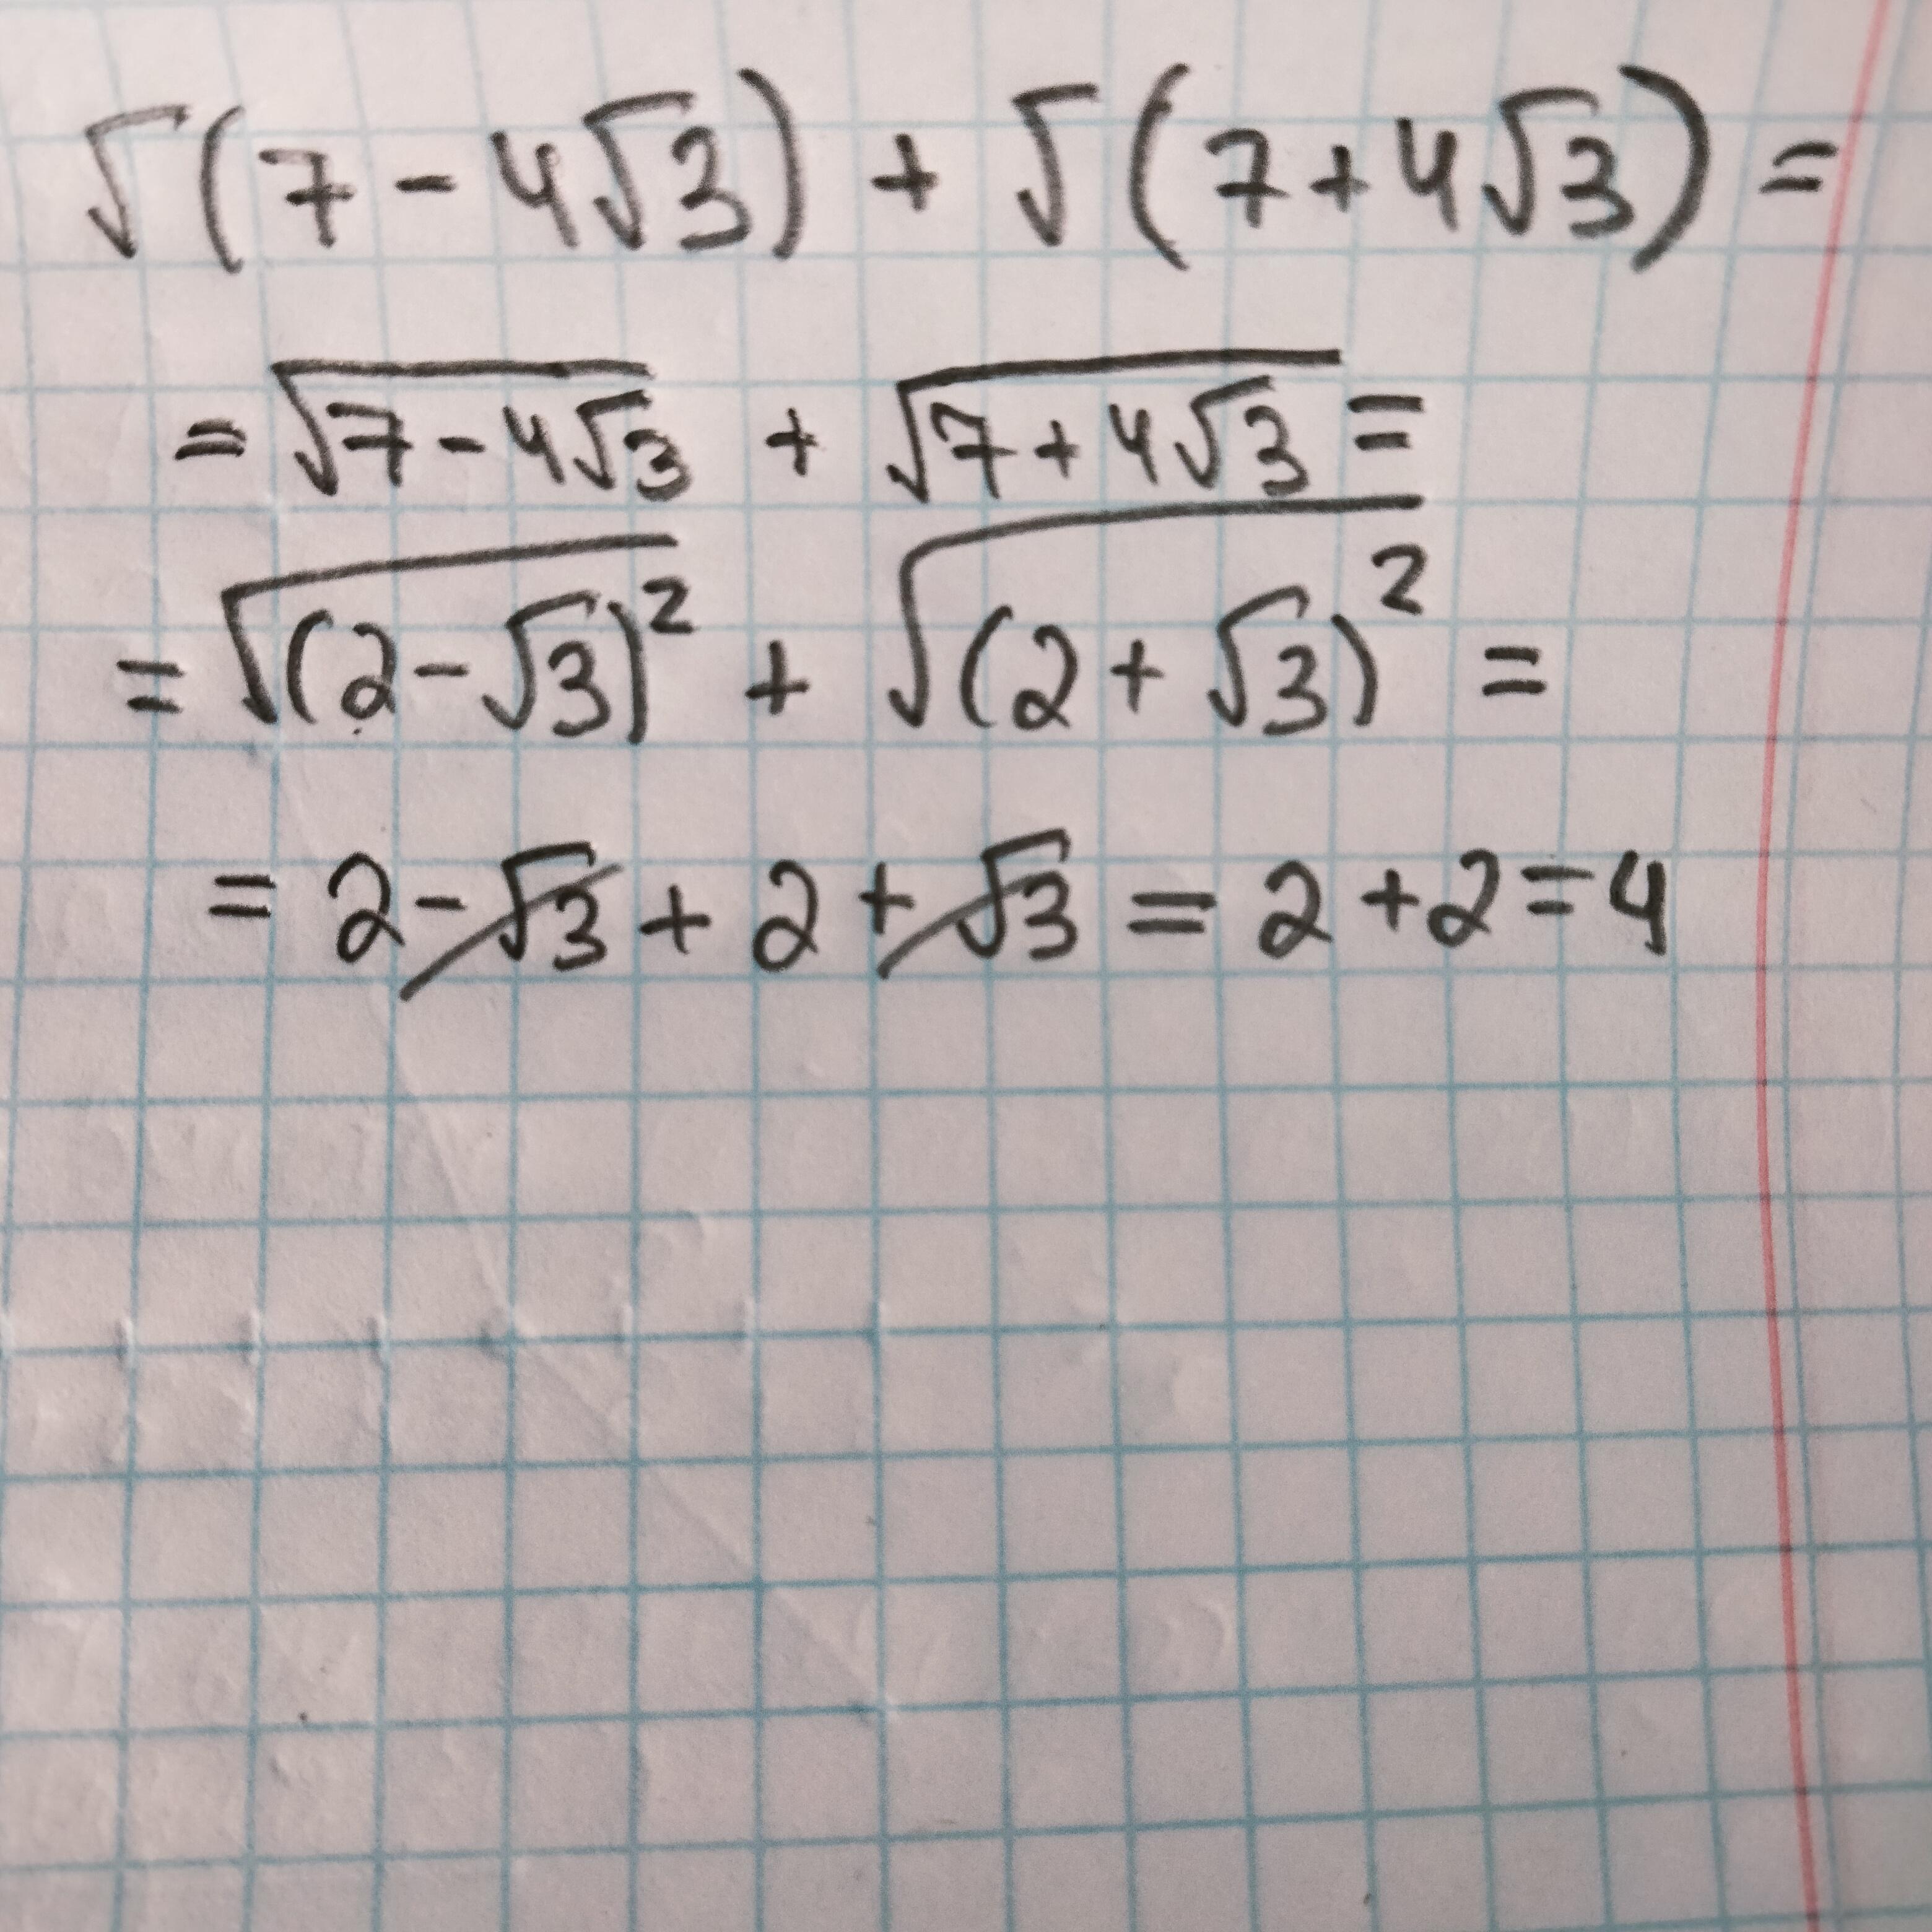 √(7-4√3) + √(7+4√3) =
= √7-4√3 + √7+4√3 =
= √(2-√3)² + √(2+√3)² =
= 2-√3 + 2 + √3 = 2+2=4